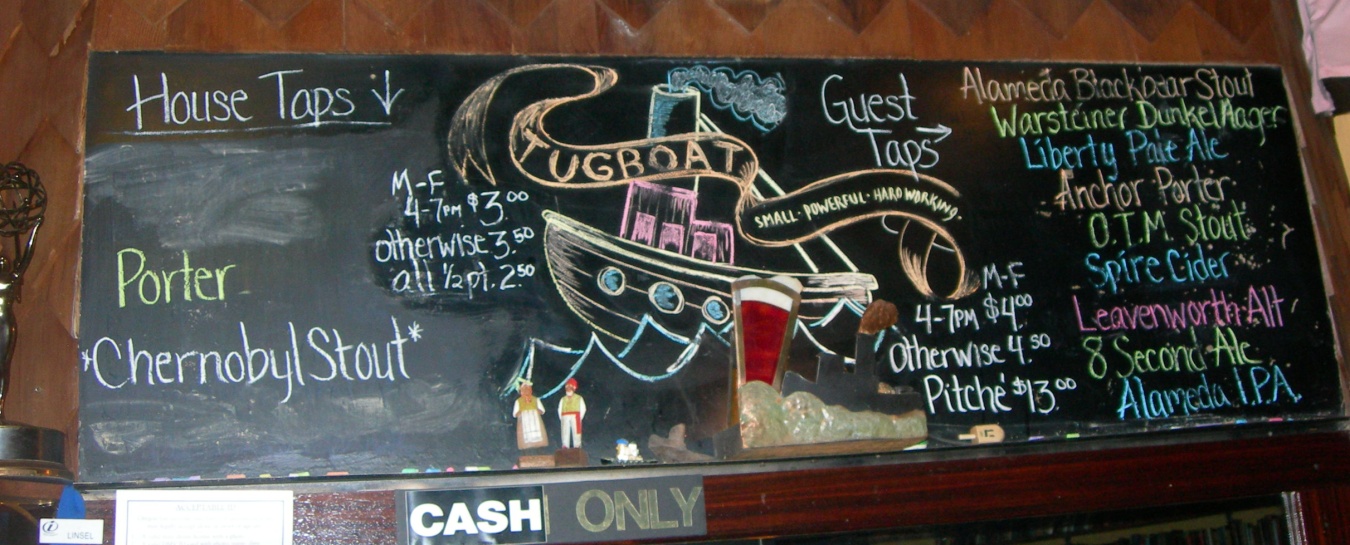 House Taps ↓
Porter
*Chernobyl Stout*
M-F
4-7PM $3.00
otherwise 3.50
all ½ pt. 2.50
TUGBOAT
SMALL · POWERFUL · HARD WORKING
Guest
Taps →
M-F
4-7PM $4.00
Otherwise 4.50
Pitché $13.00
Alameda Blackbear Stout
Warsteiner Dunkel Lager
Liberty Pale Ale
Anchor Porter
O.T.M. Stout
Spire Cider
Leavenworth Alt
8 Second Ale
Alameda I.P.A.
CASH ONLY
LINSEL